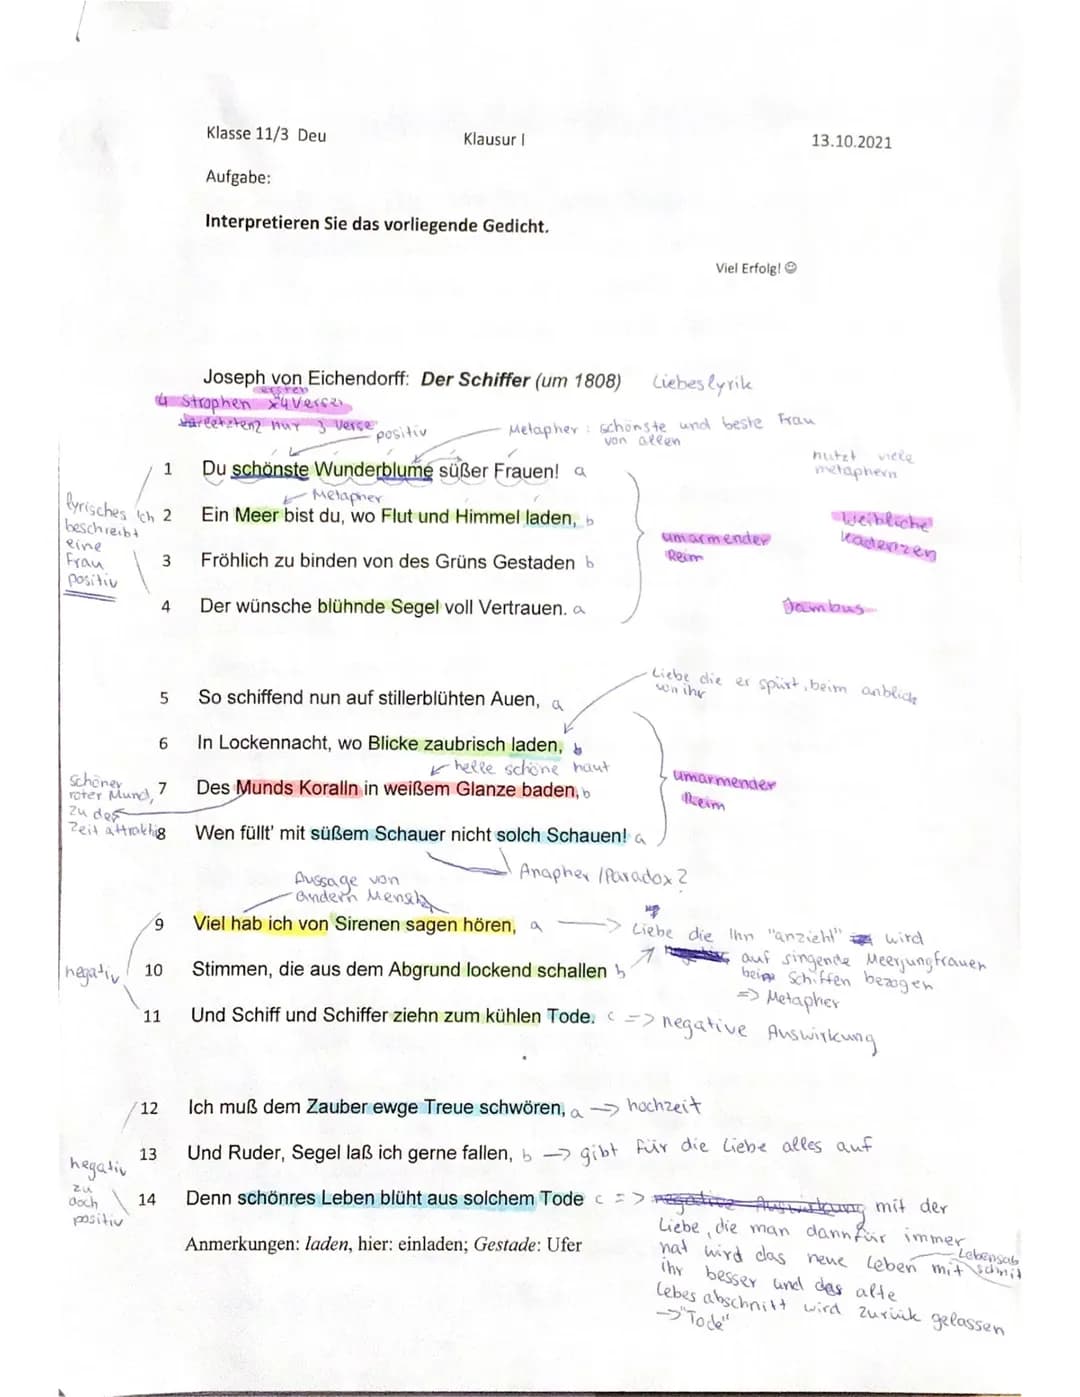 Klasse 11/3 Deu Klausur I 13.10.2021
Aufgabe:
Interpretieren Sie das vorliegende Gedicht.
Viel Erfolg! ☺
Joseph von Eichendorff: Der Schiffer (um 1808) Liebeslyrik
ersten
4 Strophen x4 Verse
letzten 2 nur 3 Verse
positiv
Metapher: schönste und beste Frau
von allen
nutzt viele
metaphern
1 Du schönste Wunderblume süßer Frauen! a
Metapher
lyrisches Ich
beschreibt
eine
Frau
positiv
2 Ein Meer bist du, wo Flut und Himmel laden, b
umarmender
Reim
weibliche
Kadenzen
3 Fröhlich zu binden von des Grüns Gestaden b
4 Der wünsche blühnde Segel voll Vertrauen. a
Jambus
Liebe die er spürt, beim anblick
von ihr
5 So schiffend nun auf stillerblühten Auen, a
6 In Lockennacht, wo Blicke zaubrisch laden, b
helle schöne haut
umarmender
Reim
schöner
roter Mund,
zu der
Zeit attraktiv
7 Des Munds Koralln in weißem Glanze baden, b
8 Wen füllt' mit süßem Schauer nicht solch Schauen! a
Anapher /Paradox?
Aussage von
andern Mensch
9 Viel hab ich von Sirenen sagen hören, a
Liebe die Ihn "anzieht" wird
auf singende Meerjungfrauen
beim Schiffen bezogen
=> Metapher
negativ
10 Stimmen, die aus dem Abgrund lockend schallen b
11 Und Schiff und Schiffer ziehn zum kühlen Tode. c => negative Auswirkung
12 Ich muß dem Zauber ewge Treue schwören, a -> hochzeit
13 Und Ruder, Segel laß ich gerne fallen, b -> gibt für die Liebe alles auf
negativ
zu
doch
positiv
14 Denn schönres Leben blüht aus solchem Tode c => negative Auswirkung mit der
Liebe, die man dann für immer
hat wird das neue Leben mit
Lebensab
schnit
ihr besser und das alte
Lebes abschnitt wird zurück gelassen
-> "Tode"
Anmerkungen: laden, hier: einladen; Gestade: Ufer